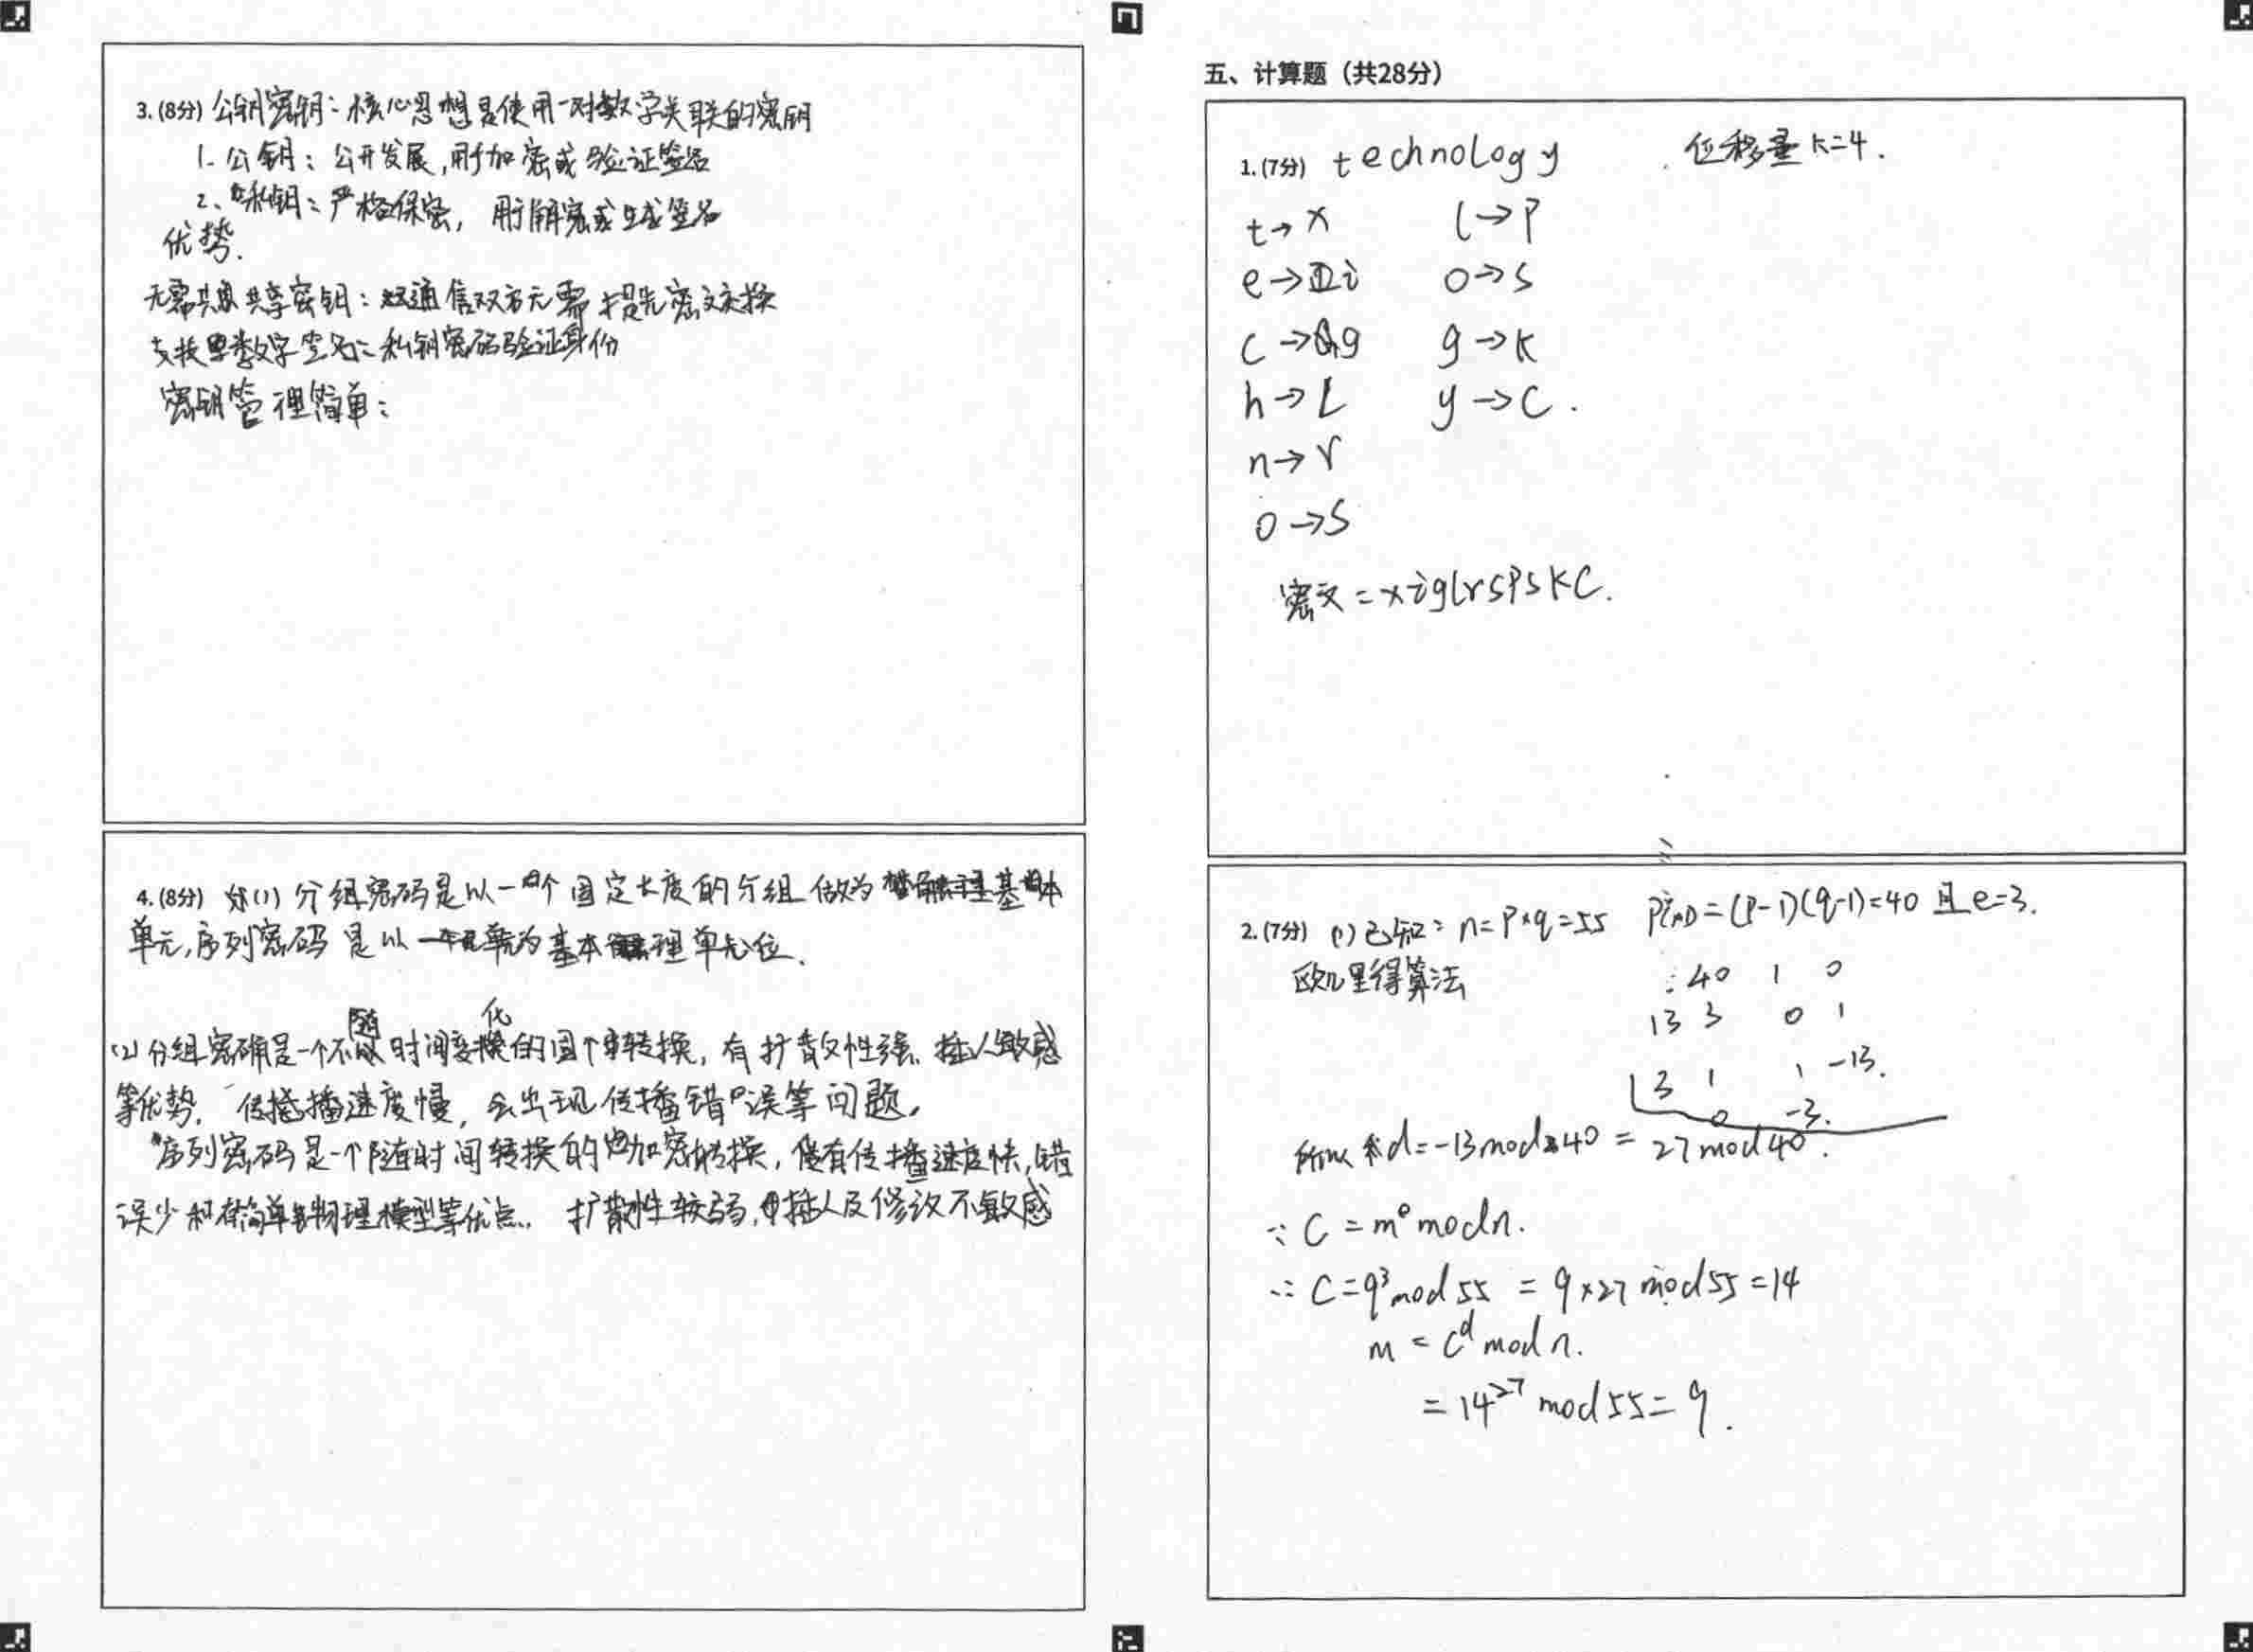 3.(8分) 公钥密钥：核心思想是使用一对数学关联的密钥
1. 公钥：公开发展,用于加密或验证签名
2、私钥：严格保密，用于解密或生成签名
优势.
无需共享密钥：通信双方无需提先密文交换
支持数字签名：私钥密码验证身份
密钥管理简单：
4.(8分) (1) 分组密码是以一个固定长度的分组做为基本
单元,序列密码是以单元为基本处理单元位.
(2) 分组密确是一个不随时间变化的固个转换，有扩散性强、插入敏感
等优势. 传播速度慢，会出现传播错误等问题.
序列密码是一个随时间转换的加密转换，有传播速度快,错
误少和简单物理模型等优点. 扩散性较弱,插入及修改不敏感
五、计算题（共28分）
1.(7分) technology 位移量k=4.
t→x l→p
e→i o→s
c→g g→k
h→L y→C.
n→r
o→s
密文=xiglrspskc.
2.(7分) (1)已知：n=p×q=55 =(p-1)(q-1)=40 且e=3.
欧几里得算法 40 1 0
13 3 0 1
3 1 1 -13.
0 -3.
所以 d=-13mod40= 27mod40.
∵ C=m^e mod n.
∴ C=9³mod55 = 9×27mod55=14
m = C^d mod n.
= 14²⁷ mod55=9.